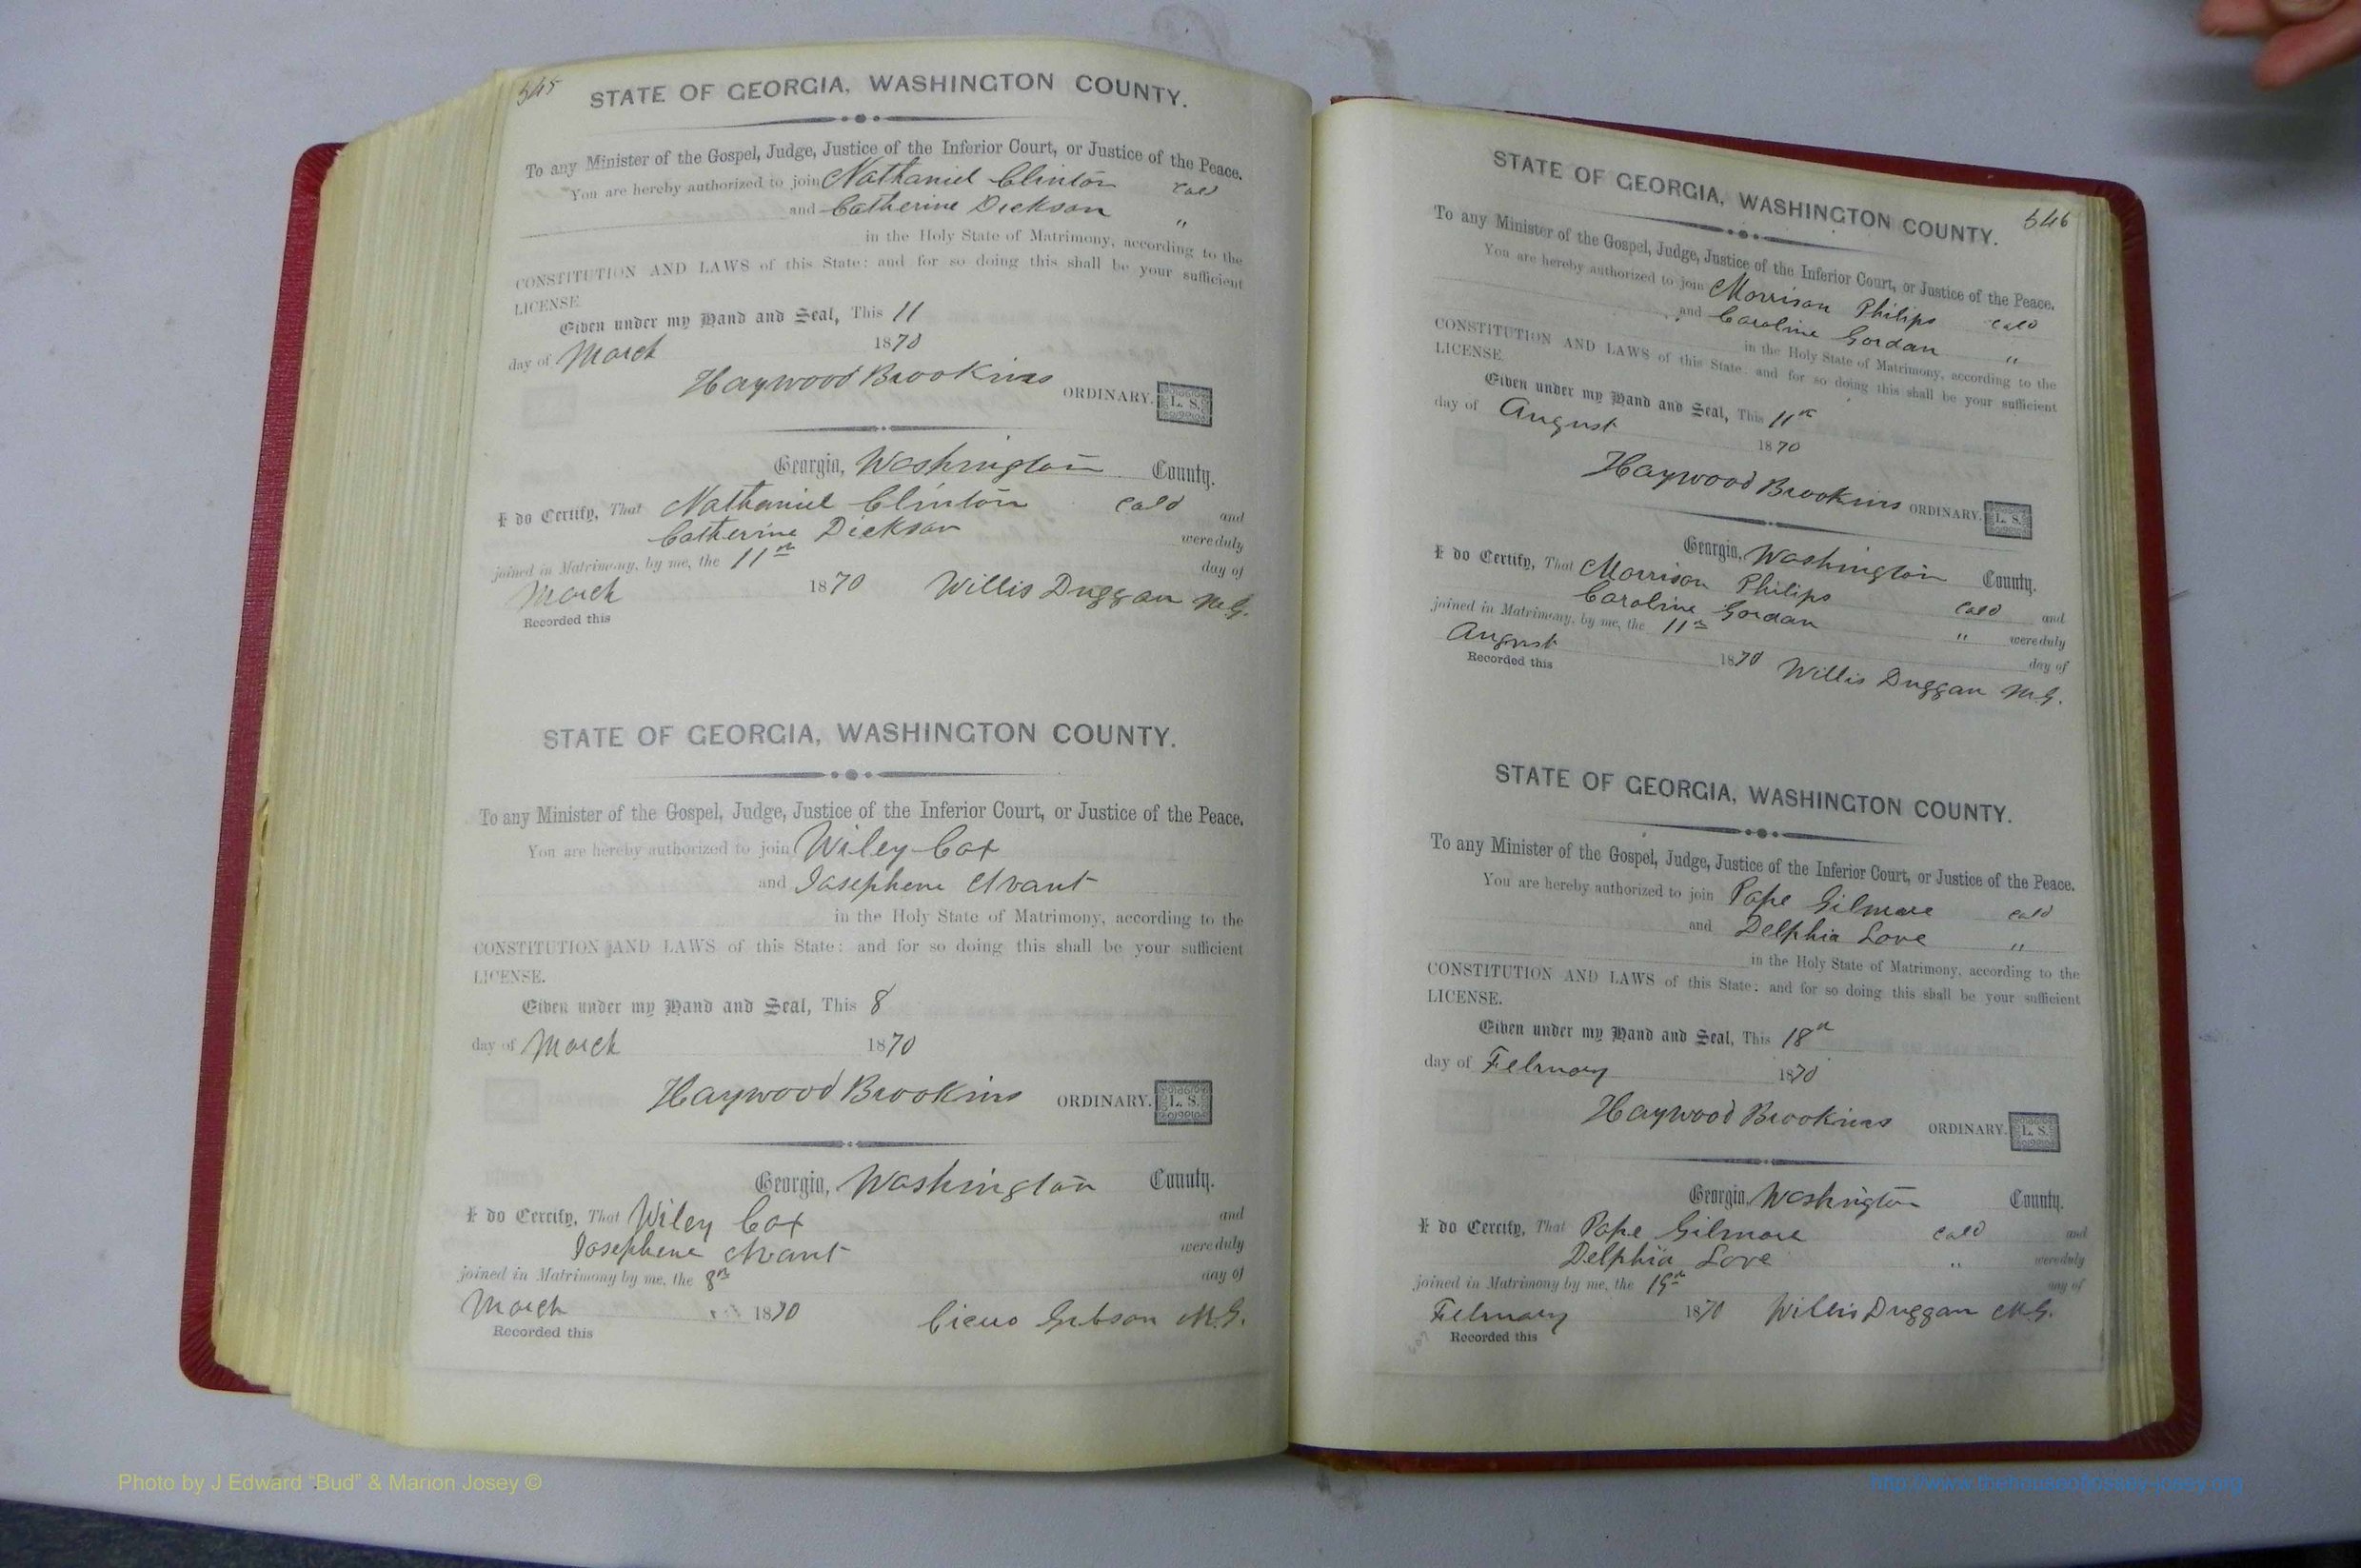 545
STATE OF GEORGIA, WASHINGTON COUNTY.
To any Minister of the Gospel, Judge, Justice of the Inferior Court, or Justice of the Peace.
You are hereby authorized to join Nathaniel Clinton Cold
and Catherine Dickson "
in the Holy State of Matrimony, according to the
CONSTITUTION AND LAWS of this State: and for so doing this shall be your sufficient
LICENSE.
Given under my Hand and Seal, This 11
day of March 1870
Haywood Brookins ORDINARY. L. S.
Georgia, Washington County.
I do Certify, That Nathaniel Clinton Cold and
Catherine Dickson were duly
joined in Matrimony, by me, the 11th day of
March 1870 Willis Duggan M.G.
Recorded this
STATE OF GEORGIA, WASHINGTON COUNTY.
To any Minister of the Gospel, Judge, Justice of the Inferior Court, or Justice of the Peace.
You are hereby authorized to join Wiley Cox
and Josephene Avant
in the Holy State of Matrimony, according to the
CONSTITUTION AND LAWS of this State: and for so doing this shall be your sufficient
LICENSE.
Given under my Hand and Seal, This 8
day of March 1870
Haywood Brookins ORDINARY. L. S.
Georgia, Washington County.
I do Certify, That Wiley Cox and
Josephene Avant were duly
joined in Matrimony by me, the 8th day of
March 1870 Cicero Gibson M.G.
Recorded this
546
STATE OF GEORGIA, WASHINGTON COUNTY.
To any Minister of the Gospel, Judge, Justice of the Inferior Court, or Justice of the Peace.
You are hereby authorized to join Morrison Philips Cold
and Caroline Gordan "
in the Holy State of Matrimony, according to the
CONSTITUTION AND LAWS of this State: and for so doing this shall be your sufficient
LICENSE.
Given under my Hand and Seal, This 11th
day of August 1870
Haywood Brookins ORDINARY. L. S.
Georgia, Washington County.
I do Certify, That Morrison Philips Cold and
Caroline Gordan " were duly
joined in Matrimony, by me, the 11th day of
August 1870 Willis Duggan M.G.
Recorded this
STATE OF GEORGIA, WASHINGTON COUNTY.
To any Minister of the Gospel, Judge, Justice of the Inferior Court, or Justice of the Peace.
You are hereby authorized to join Pope Gilmore Cold
and Delphia Love "
in the Holy State of Matrimony, according to the
CONSTITUTION AND LAWS of this State: and for so doing this shall be your sufficient
LICENSE.
Given under my Hand and Seal, This 18th
day of February 1870
Haywood Brookins ORDINARY. L. S.
Georgia, Washington County.
I do Certify, That Pope Gilmore Cold and
Delphia Love " were duly
joined in Matrimony by me, the day of
February 1870 Willis Duggan M.G.
Recorded this
Photo by J Edward "Bud" & Marion Josey ©